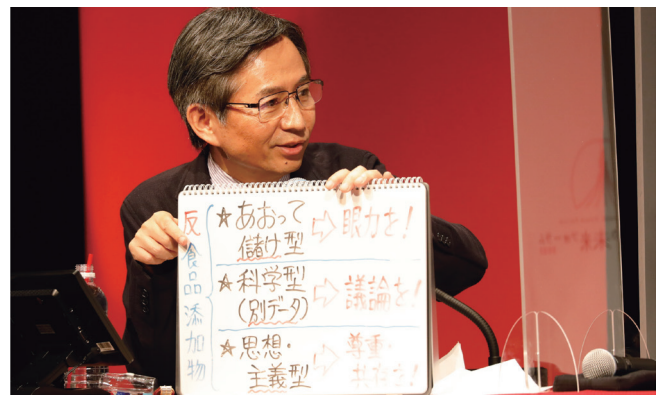 反食品添加物
☆あおって
儲け型
⇨眼力を!
☆科学型
(別データ)
⇨議論を!
☆思想・
主義型
⇨尊重・
共存を!